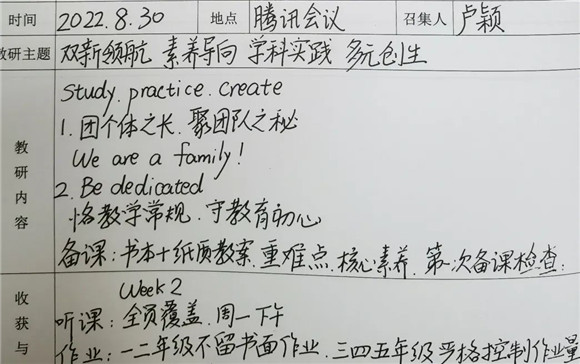 时间 2022.8.30 地点 腾讯会议 召集人 卢颖
教研主题 双新领航 素养导向 学科实践 多元创生
教研内容
study.practice.create
1.团个体之长.聚团队之秘
We are a family!
2.Be dedicated
恪教学常规.守教育初心
备课:书本+纸质教案.重难点.核心素养.第一次备课检查:
收获与
Week 2
听课:全员覆盖.周一下午
作业:一二年级不留书面作业.三四五年级严格控制作业量